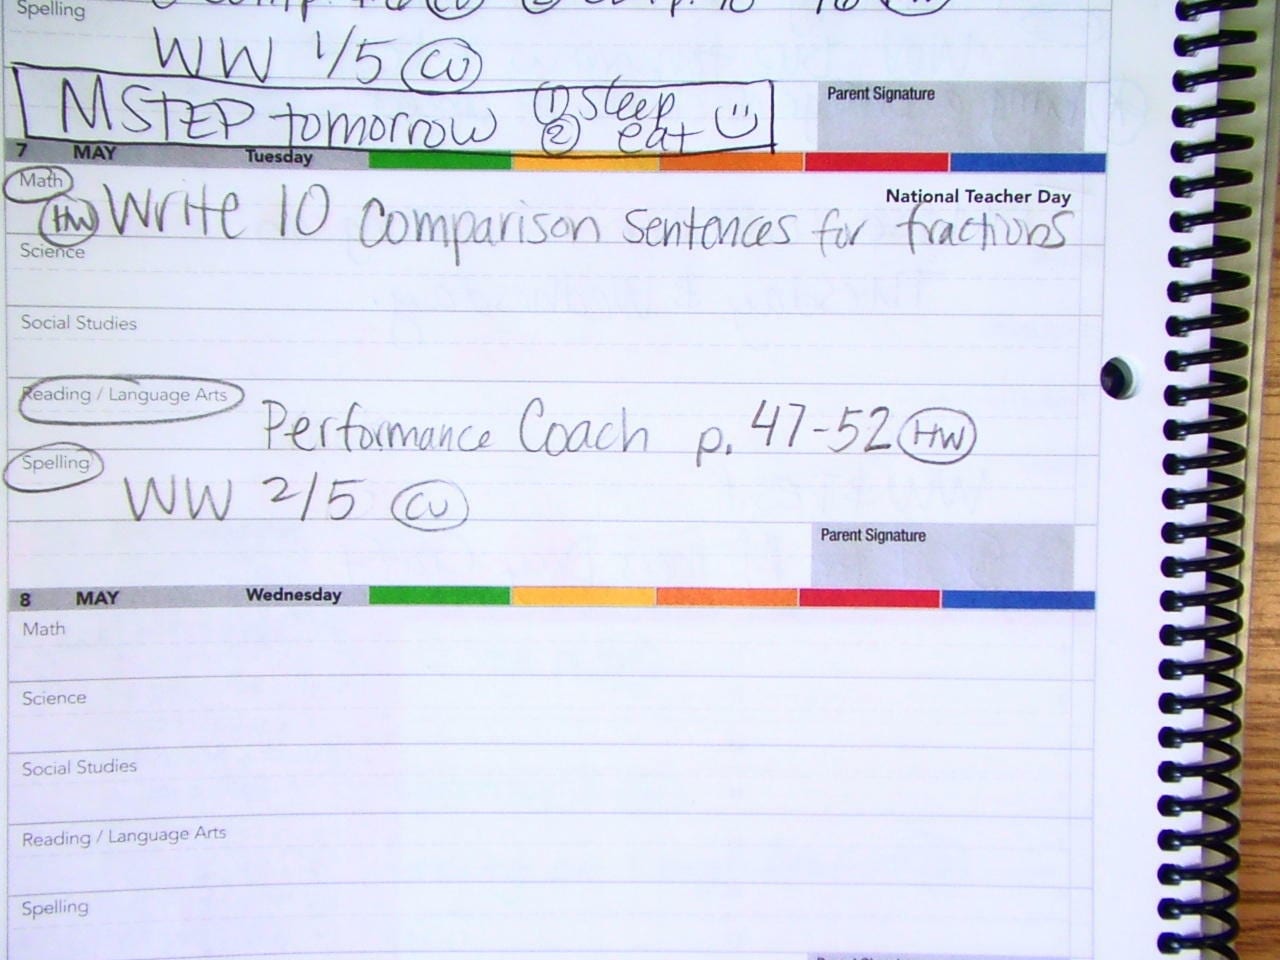 Spelling
WW 1/5 CW
MSTEP tomorrow ① sleep
② eat
Parent Signature
7 MAY Tuesday
Math
National Teacher Day
HW Write 10 comparison sentences for fractions
Science
Social Studies
Reading / Language Arts
Performance Coach p. 47-52 HW
Spelling
WW 2/5 CW
Parent Signature
8 MAY Wednesday
Math
Science
Social Studies
Reading / Language Arts
Spelling